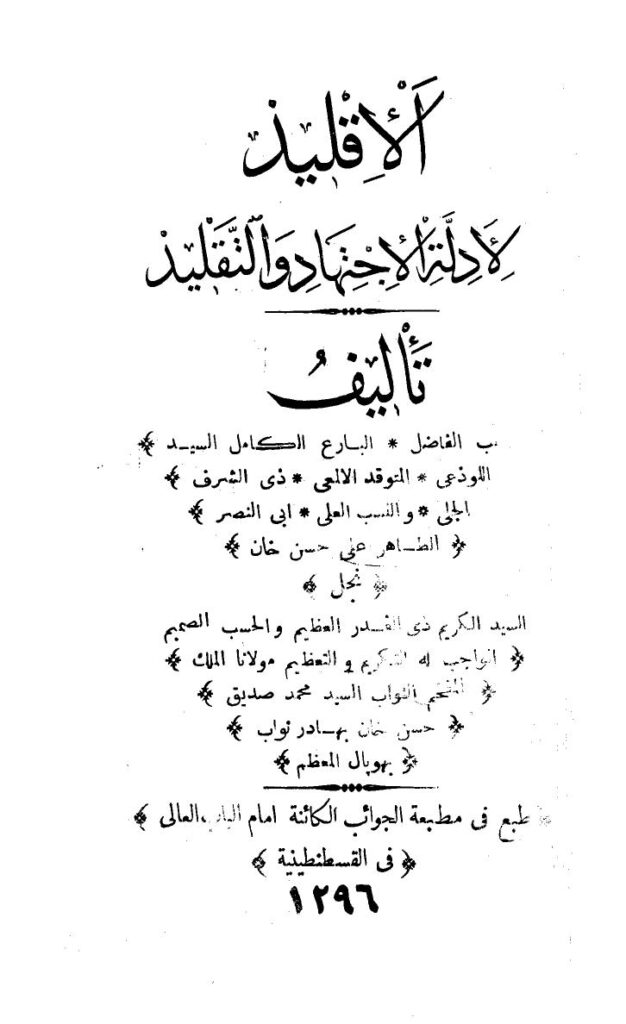 أَلْإِقْلِيْذ
لِأَدِلَّةِ الْإِجْتِهَادِ وَالتَّقْلِيْذ
تَأْلِيْفُ
الفاضل * البارع الكامل السيد
اللوذعى * المتوقد الالمعى * ذى الشرف
الجلى * والنسب العلى * ابى النصر
الطاهر على حسن خان
نجل
السيد الكريم ذى القدر العظيم والحسب الصميم
الواجب له التكريم والتعظيم مولانا الملك
المفخم النواب السيد محمد صديق
حسن خان بهادر نواب
بهوپال المعظم
طبع فى مطبعة الجوائب الكائنة امام الباب العالى
فى القسطنطينية
١٢٩٦